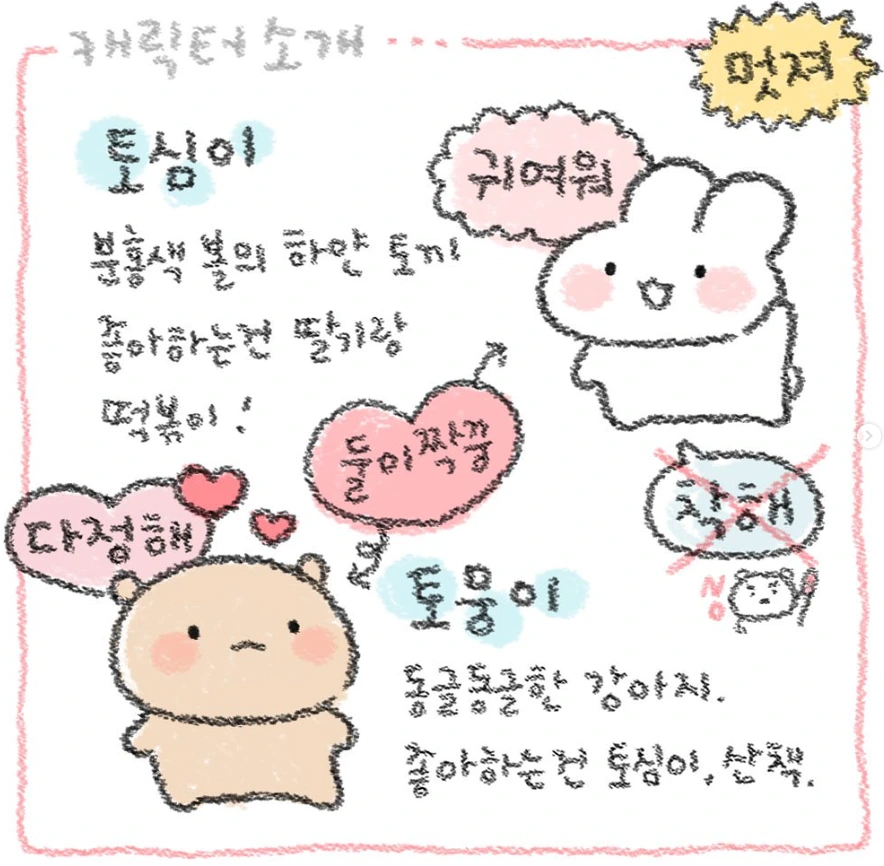 캐릭터 소개
멋져
토심이
귀여워
분홍색 볼의 하얀 토끼
좋아하는건 딸기랑
떡볶이!
둘이 짝꿍
착해
다정해
NO
토뭉이
동글동글한 강아지.
좋아하는건 토심이, 산책.